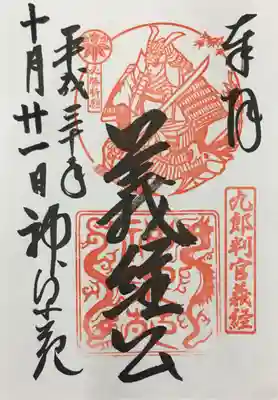 奉拝
九郎判官義経
義経公
平成三十年
十月廿一日 神泉苑